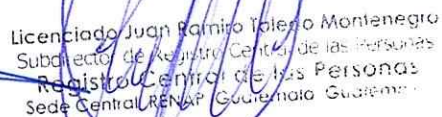 Licenciado Juan Ramiro Toledo Montenegro
Subdirector de Registro Central de las Personas
Registro Central de las Personas
Sede Central, RENAP Guatemala Guatemala